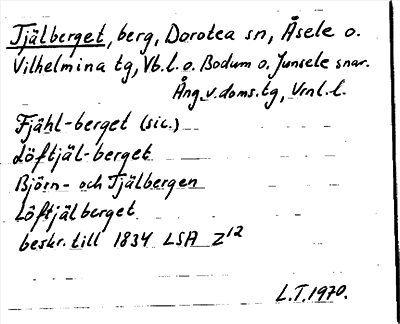 Tjälberget, berg, Dorotea sn, Åsele o.
Vilhelmina tg, Vb. l. o. Bodum o. Junsele snar.
Ång. v. doms. tg, Vrnl. l.
Fjähl-berget (sic.)
Löftjäl-berget
Björn- och Tjälbergen
Löftjälberget
beskr. till 1834 LSA Z12
L.T. 1970.